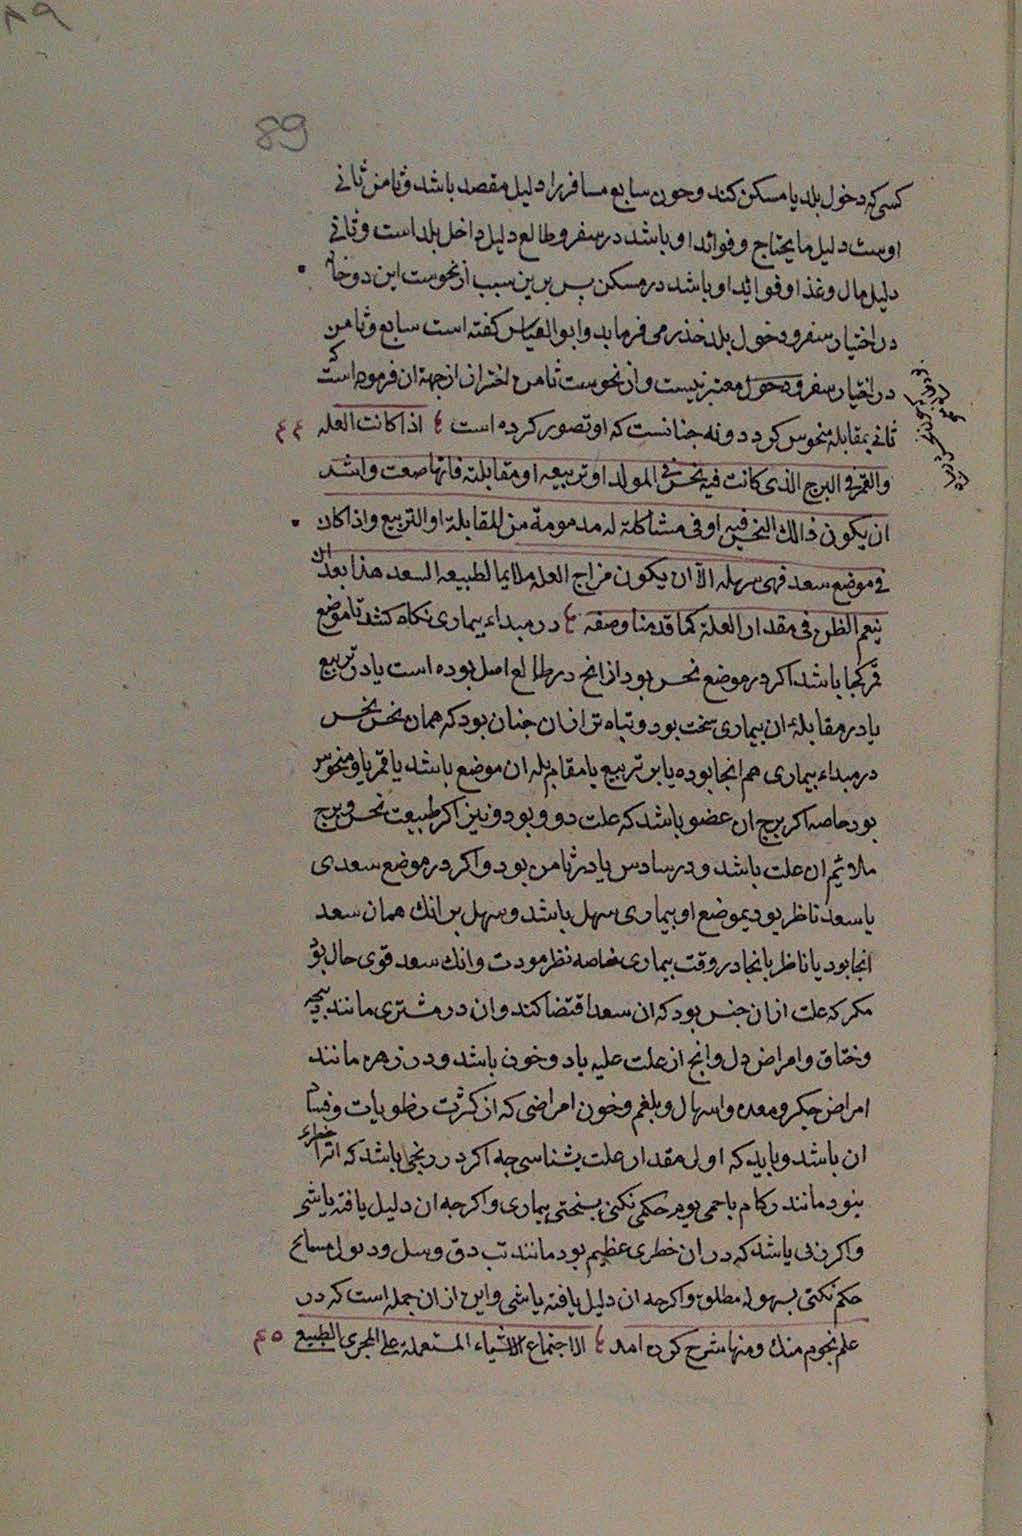 ٨٩
89
کسی که دخول بلد یا مسکن کند و چون سابع مسافر را دلیل مقصد باشد و ثامن ثانی
اوست دلیل ما یحتاج و فوائد او باشد در سفر و طالع دلیل داخل بلد است و ثانی
دلیل مال و غذا و فوائد او باشد در مسکن پس برین سبب از نحوست این دو خانه
در اختیار سفر و دخول بلد حذر می فرماید و ابو العباس کفته است سابع و ثامن
در اختیار سفر و دخول معتبر نیست و از نحوست ثامن احتراز از جهة ان فرموده است که
ثانی بمقابله منحوس کردد و نه جنانست که او تصور کرده است اذا کانت العله ٤٤
والقمر فی البرج الذی کانت فیه نحس فی المولد او تربیعه او مقابلته فانها صعت واشد
ان یکون ذالك النحس فیه او فی مشاکلة له مدمومة من المقابلة او التربیع واذا کان
فی موضع سعد فهی سهله الا ان یکون مزاج العله ملایما لطبیعه السعد هذا بعد ان
ینعم النظر فی مقدار العلة کما قدمنا وصفه در مبداء بیماری نکاه کنند تا موضع
قمر کجا باشد اکر در موضع نحس بود از انج در طالع اصل بوده است یا در تربیع
یا در مقابله ان بیماری سخت بود و تباه تر ازان جنان بود که همان نحس نحس
در مبداء بیماری هم انجا بوده یا بر تربیع یا مقابله ان موضع باشد یا قمر یا و منحوس
بود خاصه اکر برج ان عضو باشد که علت درو بود و نیز اکر طبیعت نحس و برج
ملائیم ان علت باشد و در سادس یا در ثامن بود و اکر در موضع سعدی
یا سعد ناظر بود بموضع او بیماری سهل باشد و سهل بر انك همان سعد
انجا بود یا ناظر بانجا در وقت بیماری خاصه نظر مودت و انك سعد قوی حال بود
مکر که علت ازان جنس بود که ان سعد اقتضا کند و ان در مشتری مانند
و خناق و امراض دل و انج از علت علیه باد و خون باشد و در زهره مانند
امراض جکر و معده و اسهال و بلغم و خون امراضی که از کثرت رطوبات و فساد
ان باشد و باید که اول مقدار علت بشناسی جه اکر در رنجی باشد که انرا خطری
بنود مانند زکام یا حمی یوم حکم نکنی بسختی بیماری و اکر جه ان دلیل یافته باشی
و اکر رنجی باشد که در ان خطری عظیم بود مانند تب دق و سل و دبول مسایح
حکم نکنی بسهوله مطلق و اکر جه ان دلیل یافته باشی و این ازان جمله است که در
علم نجوم منك ومنها شرح کرده امد الاجتماع للاشیاء المستعملة علی المجری الطبیعی ٤٥